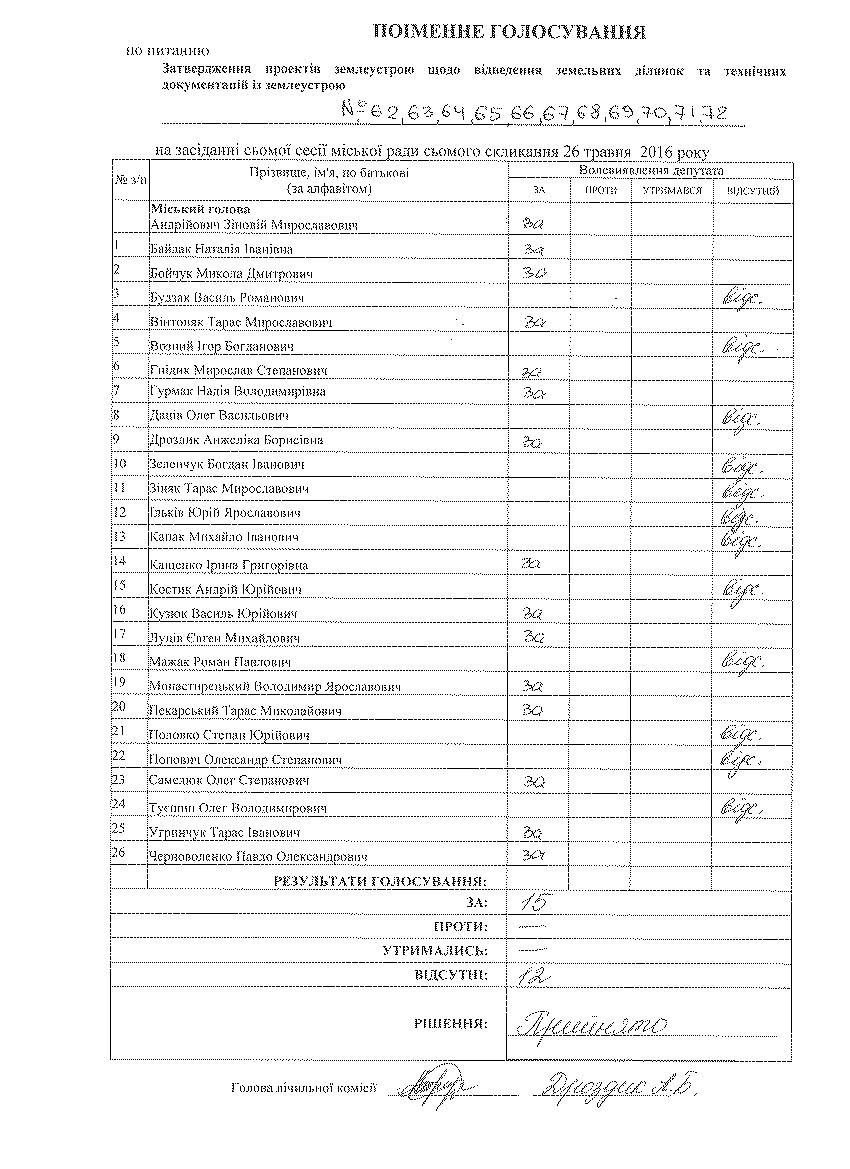 ПОІМЕННЕ ГОЛОСУВАННЯ
по питанню
Затвердження проектів землеустрою щодо відведення земельних ділянок та технічних
документацій із землеустрою
№ 62,63,64,65,66,67,68,69,70,71,72
на засіданні сьомої сесії міської ради сьомого скликання 26 травня 2016 року
№ з/п Прізвище, ім'я, по батькові (за алфавітом) Волевиявлення депутата
ЗА ПРОТИ УТРИМАВСЯ ВІДСУТНІЙ
Міський голова
Андрійович Зіновій Мирославович за
1 Байдак Наталія Іванівна за
2 Бойчук Микола Дмитрович за
3 Будзак Василь Романович відс.
4 Вінтоняк Тарас Мирославович за
5 Возний Ігор Богданович відс.
6 Гнідик Мирослав Степанович за
7 Гурмак Надія Володимирівна за
8 Даців Олег Васильович відс.
9 Дроздик Анжеліка Борисівна за
10 Зеленчук Богдан Іванович відс.
11 Зіняк Тарас Мирославович відс.
12 Ільків Юрій Ярославович відс.
13 Капак Михайло Іванович відс.
14 Кащенко Ірина Григорівна за
15 Костик Андрій Юрійович відс.
16 Кузюк Василь Юрійович за
17 Луців Євген Михайлович за
18 Мажак Роман Павлович відс.
19 Монастирецький Володимир Ярославович за
20 Пекарський Тарас Миколайович за
21 Половко Степан Юрійович відс.
22 Попович Олександр Степанович відс.
23 Самелюк Олег Степанович за
24 Олег Володимирович відс.
25 Угринчук Тарас Іванович за
26 Черноволенко Павло Олександрович за
РЕЗУЛЬТАТИ ГОЛОСУВАННЯ:
ЗА: 15
ПРОТИ: —
УТРИМАЛИСЬ: —
ВІДСУТНІ: 12
РІШЕННЯ: Прийнято
Голова лічильної комісії Дроздик А.Б.